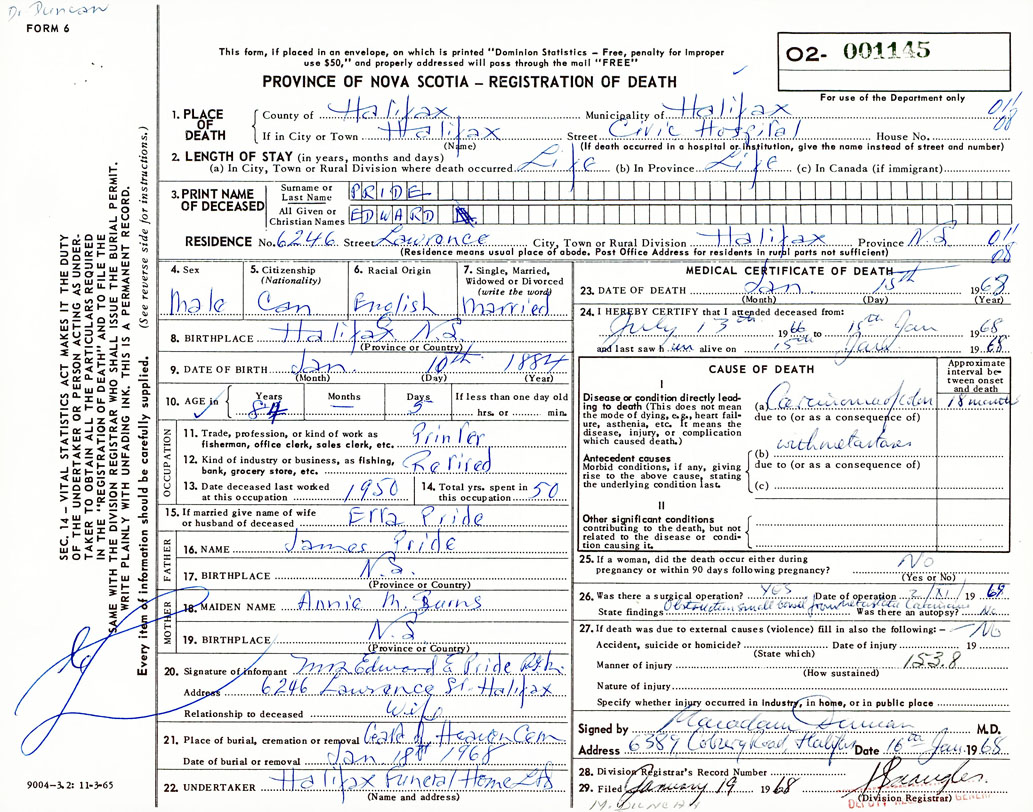 Dr Duncan
FORM 6
This form, if placed in an envelope, on which is printed "Dominion Statistics – Free, penalty for improper
use $50," and properly addressed will pass through the mail "FREE"
PROVINCE OF NOVA SCOTIA – REGISTRATION OF DEATH
O2- 001145
For use of the Department only
1. PLACE OF DEATH
County of Halifax Municipality of Halifax 011
If in City or Town Halifax Street Civic Hospital House No. 08
(Name) (If death occurred in a hospital or institution, give the name instead of street and number)
2. LENGTH OF STAY (in years, months and days)
(a) In City, Town or Rural Division where death occurred Life (b) In Province Life (c) In Canada (if immigrant)
3. PRINT NAME OF DECEASED
Surname or Last Name PRIDE
All Given or Christian Names EDWARD
RESIDENCE No. 6246 Street Lawrence City, Town or Rural Division Halifax Province N.S. 011
(Residence means usual place of abode. Post Office Address for residents in rural parts not sufficient) 08
4. Sex Male
5. Citizenship (Nationality) Can
6. Racial Origin English
7. Single, Married, Widowed or Divorced (write the word) Married
8. BIRTHPLACE Halifax N.S.
(Province or Country)
9. DATE OF BIRTH Jan. 10th 1884
(Month) (Day) (Year)
10. AGE in Years 84 Months — Days 5 If less than one day old
hrs. or min.
OCCUPATION
11. Trade, profession, or kind of work as Printer
fisherman, office clerk, sales clerk, etc.
12. Kind of industry or business, as fishing, Retired
bank, grocery store, etc.
13. Date deceased last worked at this occupation 1950
14. Total yrs. spent in this occupation 50
15. If married give name of wife
or husband of deceased Pride
FATHER
16. NAME James Pride
17. BIRTHPLACE N.S.
(Province or Country)
MOTHER
18. MAIDEN NAME Annie M. Burns
19. BIRTHPLACE N.S
(Province or Country)
20. Signature of informant Mrs Edward E Pride
Address 6246 Lawrence St. Halifax
Relationship to deceased Wife
21. Place of burial, cremation or removal Gate of Heaven Cem
Date of burial or removal Jan 18th 1968
22. UNDERTAKER Halifax Funeral Home Ltd
(Name and address)
MEDICAL CERTIFICATE OF DEATH
23. DATE OF DEATH Jan. 15th 1968
(Month) (Day) (Year)
24. I HEREBY CERTIFY that I attended deceased from:
July 13th 1966 to 15th Jan 1968
and last saw him alive on 15th Jan 1968
CAUSE OF DEATH
Approximate interval between onset and death
I
Disease or condition directly leading to death (This does not mean the mode of dying, e.g., heart failure, asthenia, etc. It means the disease, injury, or complication which caused death.)
(a) Carcinoma of colon 18 months
due to (or as a consequence of)
with metastases
Antecedent causes
Morbid conditions, if any, giving rise to the above cause, stating the underlying condition last.
(b)
due to (or as a consequence of)
(c)
II
Other significant conditions
contributing to the death, but not related to the disease or condition causing it.
25. If a woman, did the death occur either during
pregnancy or within 90 days following pregnancy? No
(Yes or No)
26. Was there a surgical operation? Yes Date of operation 2/XI/ 19
State findings Obstruction small bowel from metastatic Carcinoma Was there an autopsy? No
27. If death was due to external causes (violence) fill in also the following:– No
Accident, suicide or homicide? Date of injury 19
(State which)
Manner of injury 153.8
(How sustained)
Nature of injury
Specify whether injury occurred in Industry, in home, or in public place
Signed by Macadam Duncan M.D.
Address 6389 Coburg Road Halifax Date 16th Jan. 1968
28. Division Registrar's Record Number
29. Filed January 19 1968
(Division Registrar)
DEPUTY REGISTRAR GENERAL
SEC. 14 – VITAL STATISTICS ACT MAKES IT THE DUTY
OF THE UNDERTAKER OR PERSON ACTING AS UNDER-
TAKER TO OBTAIN ALL THE PARTICULARS REQUIRED
IN THE "REGISTRATION OF DEATH" AND TO FILE THE
SAME WITH THE DIVISION REGISTRAR WHO SHALL ISSUE THE BURIAL PERMIT.
WRITE PLAINLY WITH UNFADING INK. THIS IS A PERMANENT RECORD.
Every item of information should be carefully supplied. (See reverse side for instructions.)
9004–3.2: 11-3-65